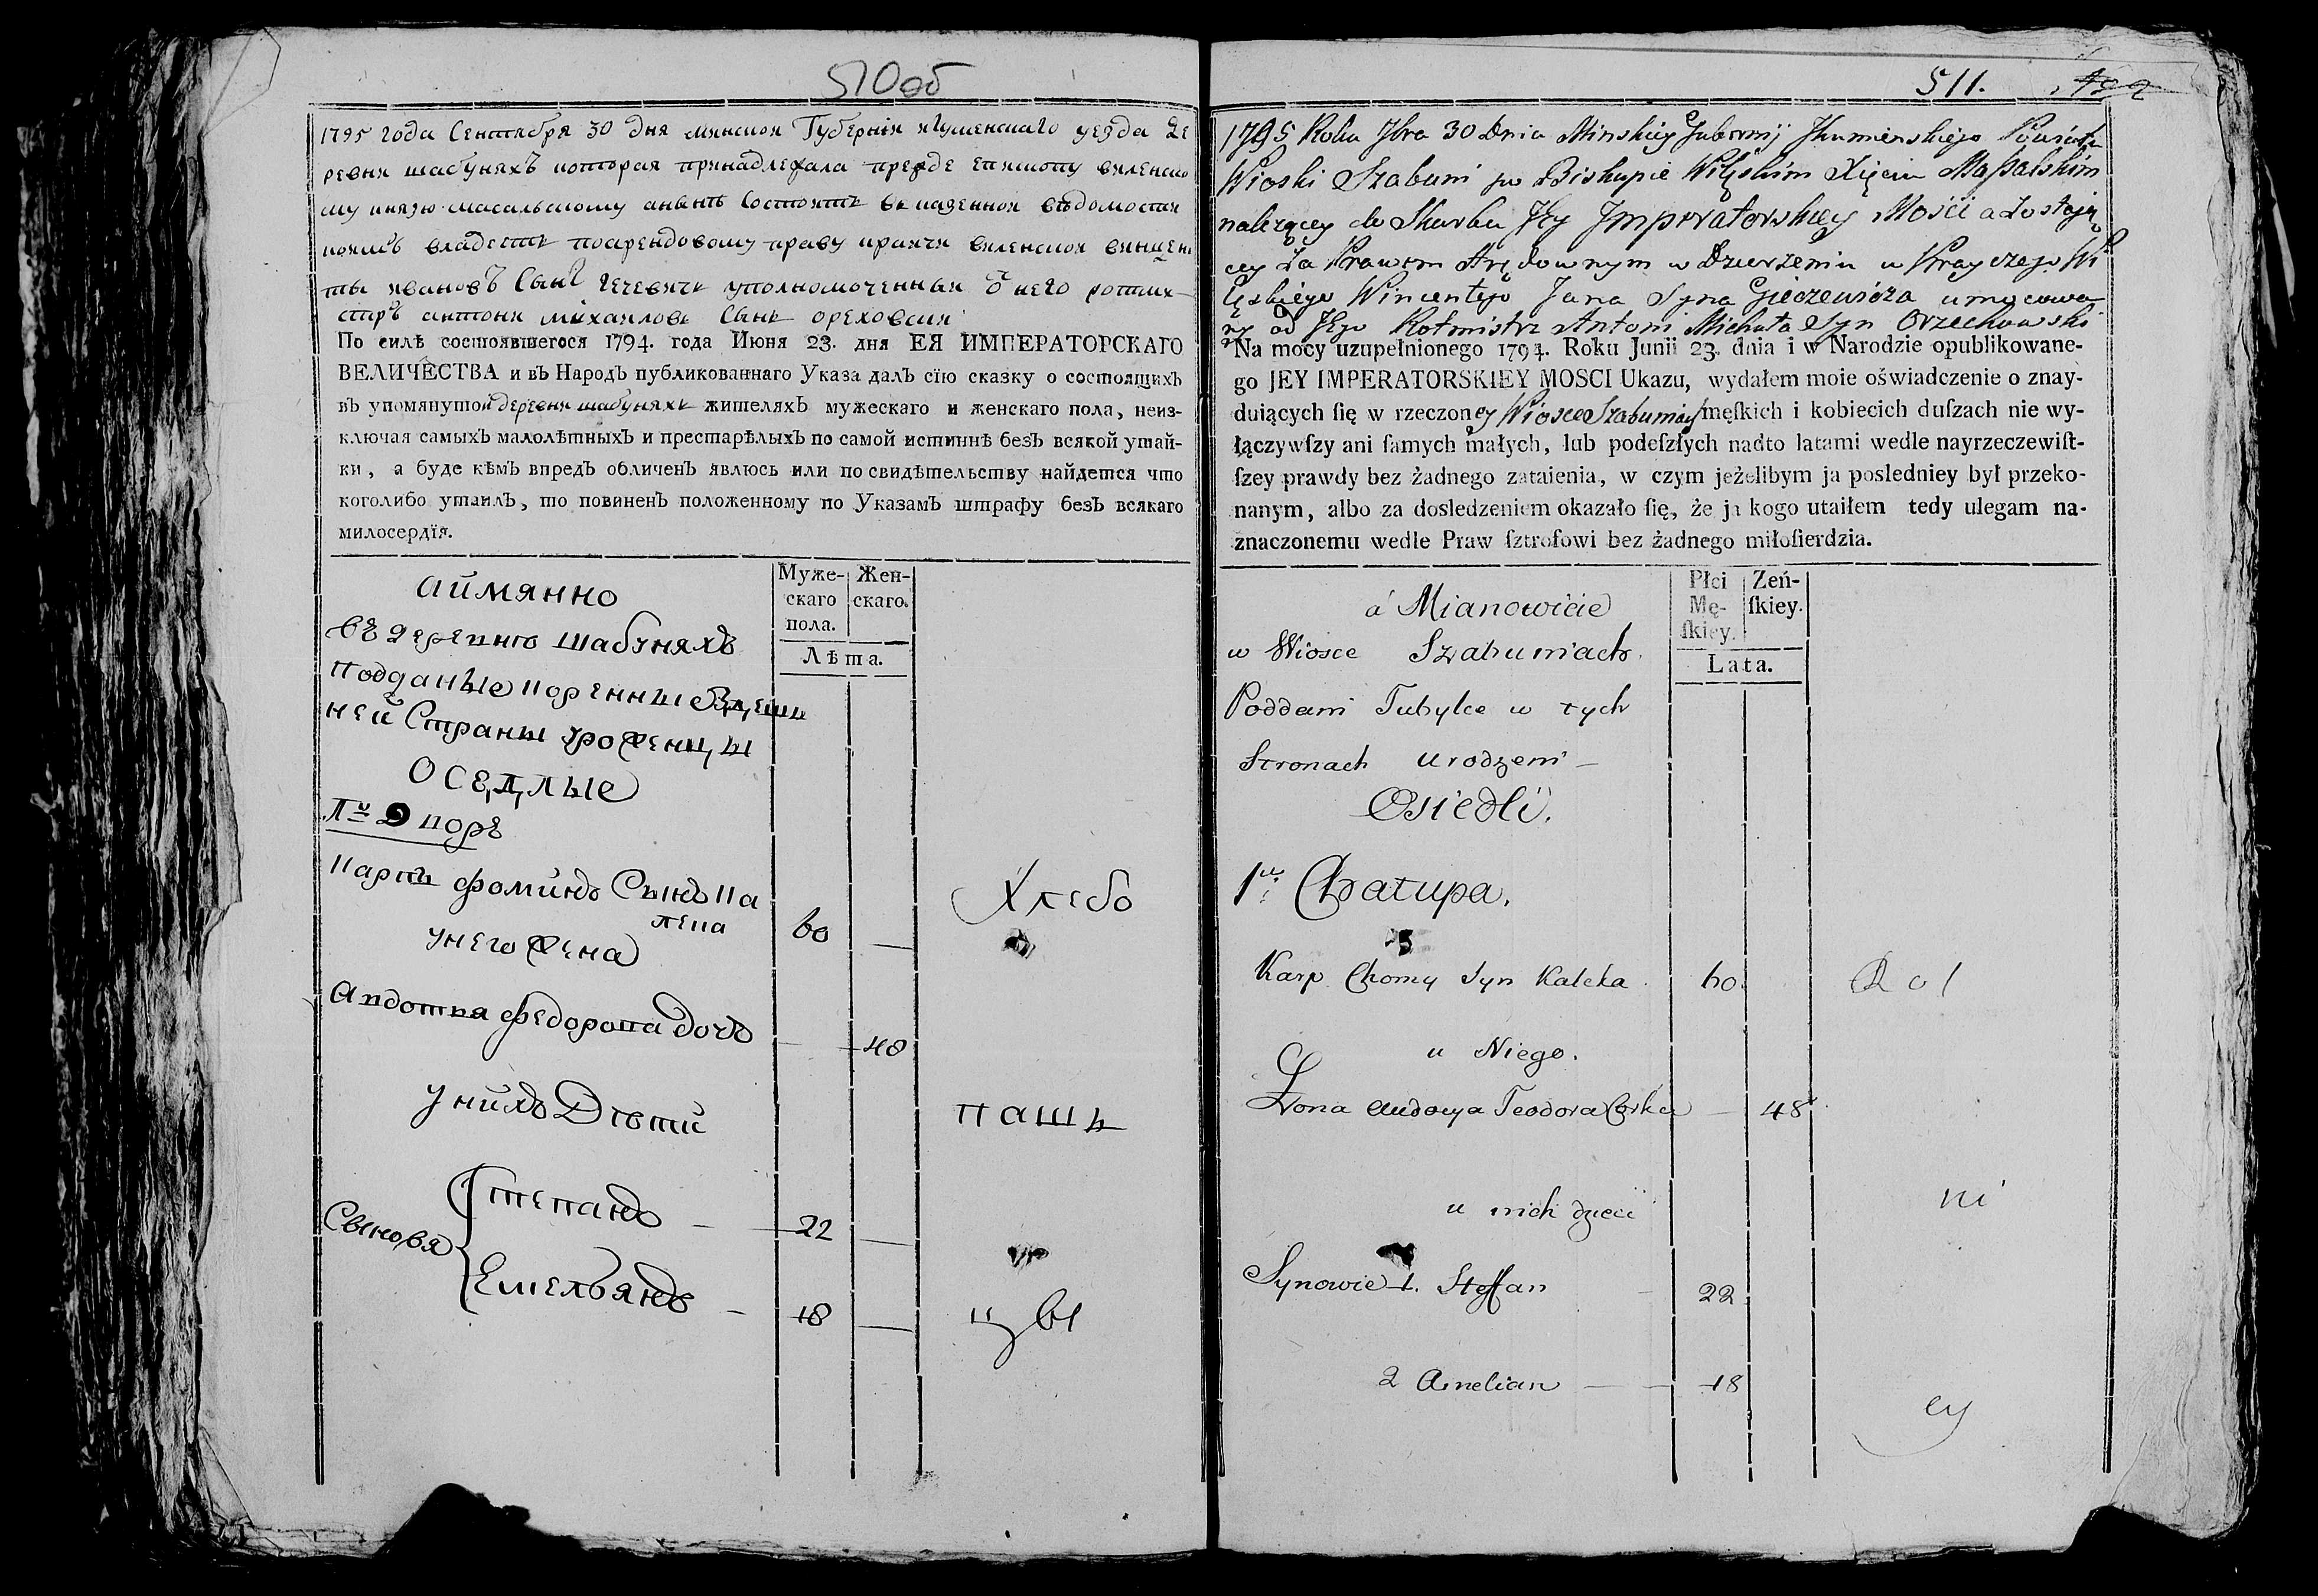 510об
1795 года Сентября 30 дня минской Губернїи игуменскаго уезда де
ревни шабуняхЪ которая принадлежала прежде епископу виленско
му князю масальскому анынѣ Состоитъ въ казенной вѣдомости
коимЪ владеетъ поарендовому праву крайчи виленской винцен
ты ивановЪ СынЪ гечевичь уполномоченный о него ротми
стрЪ антони михаиловъ Сынъ ореховски
По силѣ состоявшегося 1794. года Июня 23. дня ЕЯ ИМПЕРАТОРСКАГО
ВЕЛИЧЕСТВА и вЪ НародЪ публикованнаго Указа далЪ сїю сказку о состоящихЪ
вЪ упомянутой деревни шабуняхъ жителяхЪ мужескаго и женскаго пола, неиз-
ключая самыхЪ малолѣтныхЪ и престарѣлыхЪ по самой истиннѣ безЪ всякой утай-
ки, а буде кѣмЪ впредЪ обличенЪ явлюсь или по свидѣтельству найдется что
коголибо утаилЪ, то повиненЪ положенному по УказамЪ штрафу безЪ всякаго
милосердїя.
Муже-
скаго
пола.
Жен-
скаго.
Лѣта.
аимянно
въ деревнѣ шабуняхъ
Подданые коренные Здешь
ней Страны уроженцы
Оседлые
1й Двор
Карпъ фоминъ Сынъ Ка
лека
60
Хлебо
унего жена
Авдотья федорова дочь
48
унихъ Дѣти
пашь
Сыновя
Степанъ
22
Емельянъ
18
цы
511.
1795 Roku 7bra 30 Dnia Minskiey Gubernij Jhumenskiego Powiatu
Wioski Szabuni po Biskupie Wileskim Xięciu Massalskim
należącey do Skarbu Jey Jmperatorskiey Mości a zostają
cey za Prawem Arędownym w Dzierżeniu u Krayczego Wi
leskiego Wincentego Jana Syna Gieczewicza umocowa
ny od Jego Rotmistrz Antoni Michała Syn Orzechowski
Na mocy uzupełnionego 1794. Roku Junii 23. dnia i w Narodzie opublikowane-
go JEY IMPERATORSKIEY MOSCI Ukazu, wydałem moie oświadczenie o znay-
duiących ſię w rzeczoney Wiosce Szabuniach męſkich i kobiecich duſzach nie wy-
łączywſzy ani ſamych małych, lub podeſzłych nadto latami wedle nayrzeczewiſt-
ſzey prawdy bez żadnego zataienia, w czym jeżelibym ja posledniey był przeko-
nanym, albo za dosledzeniem okazało ſię, że ja kogo utaiłem tedy ulegam na-
znaczonemu wedle Praw ſztrofowi bez żadnego miłoſierdzia.
Płci
Mę-
ſkiey.
Zeń-
ſkiey.
Lata.
á Mianowicie
w Wiosce Szabuniach.
Poddani Tubylce w tych
Stronach urodzeni
Osiedli.
1a Chałupa.
Karp Chomy Syn Kaleka
60
Rol
u Niego.
Żona Audocya Teodora Corka
48
u nich dzieci
ni
Synowie 1. Steffan
22
2 Amelian
18
cy